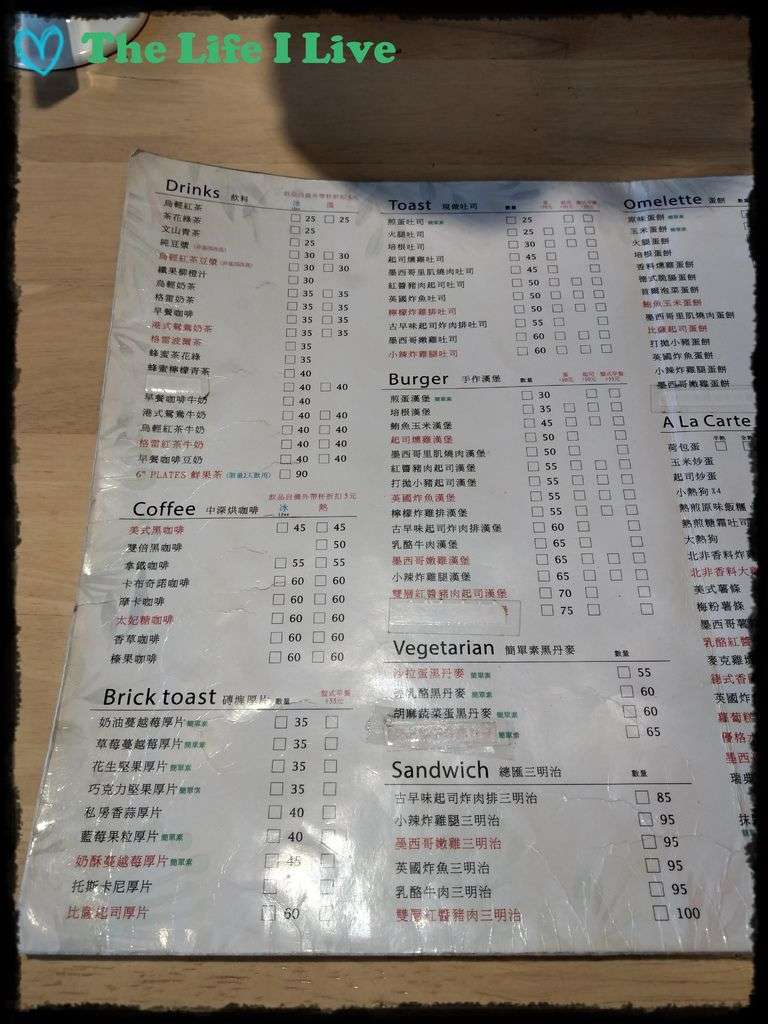 The Life I Live
Drinks 飲料 飲品自備外帶杯折扣5元
冰 溫
烏輕紅茶 □ 25 □ 25
茶花綠茶 □ 25
文山青茶 □ 25
純豆漿 □ 30 □ 30
烏輕紅茶豆漿 □ 30 □ 30
纖果柳橙汁 □ 30
烏輕奶茶 □ 35 □ 35
格雷奶茶 □ 35 □ 35
早餐咖啡 □ 35 □ 35
港式鴛鴦奶茶 □ 35 □ 35
格雷波霸茶 □ 35
蜂蜜茶花綠 □ 35
蜂蜜檸檬青茶 □ 40
□ 40 □ 40
早餐咖啡牛奶 □ 40
港式鴛鴦牛奶 □ 40 □ 40
烏輕紅茶牛奶 □ 40 □ 40
格雷紅茶牛奶 □ 40 □ 40
早餐咖啡豆奶 □ 40 □ 40
6" PLATES 鮮果茶 (限量2人飲用) □ 90
Coffee 中深烘咖啡 飲品自備外帶杯折扣5元
冰 熱
美式黑咖啡 □ 45 □ 45
雙倍黑咖啡 □ 50
拿鐵咖啡 □ 55 □ 55
卡布奇諾咖啡 □ 60 □ 60
摩卡咖啡 □ 60 □ 60
太妃糖咖啡 □ 60 □ 60
香草咖啡 □ 60 □ 60
榛果咖啡 □ 60 □ 60
Brick toast 磚塊厚片 數量 盤式早餐 +55元
奶油蔓越莓厚片 簡單素 □ 35 □
草莓蔓越莓厚片 簡單素 □ 35 □
花生堅果厚片 簡單素 □ 35 □
巧克力堅果厚片 簡單素 □ 35 □
私房香蒜厚片 □ 40 □
藍莓果粒厚片 簡單素 □ 40 □
奶酥蔓越莓厚片 簡單素 □ 45 □
托斯卡尼厚片 □ □
比薩起司厚片 □ 60 □
Toast 現做吐司 數量
煎蛋吐司 簡單素 □ 25 □ □
火腿吐司 □ 25 □ □ □
培根吐司 □ 30 □ □ □
起司燻雞吐司 □ 45 □ □
墨西哥里肌燒肉吐司 □ 45 □ □
紅醬豬肉起司吐司 □ 50 □ □ □
英國炸魚吐司 □ 50 □ □ □
檸檬炸雞排吐司 □ 50 □ □ □
古早味起司炸肉排吐司 □ 55 □ □
墨西哥嫩雞吐司 □ 60 □ □ □
小辣炸雞腿吐司 □ 60 □ □ □
Burger 手作漢堡 數量 蛋 起司 盤式早餐
煎蛋漢堡 簡單素 □ 30 □ □
培根漢堡 □ 35 □ □ □
鮪魚玉米漢堡 □ 45 □ □ □
起司燻雞漢堡 □ 50 □ □
墨西哥里肌燒肉漢堡 □ 50 □ □
紅醬豬肉起司漢堡 □ 50 □ □ □
打拋小豬起司漢堡 □ 55 □ □ □
英國炸魚漢堡 □ 55 □ □ □
檸檬炸雞排漢堡 □ 55 □ □ □
古早味起司炸肉排漢堡 □ 60 □ □
乳酪牛肉漢堡 □ 65 □ □
墨西哥嫩雞漢堡 □ 65 □ □ □
小辣炸雞腿漢堡 □ 65 □ □ □
雙層紅醬豬肉起司漢堡 □ 70 □ □
□ 75 □ □
Vegetarian 簡單素黑丹麥 數量
沙拉蛋黑丹麥 簡單素 □ 55
乳酪黑丹麥 簡單素 □ 60
胡麻蔬菜蛋黑丹麥 簡單素 □ 60
簡單素 □ 65
Sandwich 總匯三明治 數量
古早味起司炸肉排三明治 □ 85
小辣炸雞腿三明治 □ 95
墨西哥嫩雞三明治 □ 95
英國炸魚三明治 □ 95
乳酪牛肉三明治 □ 95
雙層紅醬豬肉三明治 □ 100
Omelette 蛋餅 數
原味蛋餅 簡單素
玉米蛋餅 簡單素
火腿蛋餅
培根蛋餅
香料燻雞蛋餅
德式脆腸蛋餅
首爾泡菜蛋餅
鮪魚玉米蛋餅
墨西哥里肌燒肉蛋餅
比薩起司蛋餅
打拋小豬蛋餅
英國炸魚蛋餅
小辣炸雞腿蛋餅
墨西哥嫩雞蛋餅
A La Carte
荷包蛋 半熟 □ 全熟 □
玉米炒蛋
起司炒蛋
小熱狗 X4
熱煎原味飯糰
熱煎糖霜吐司
大熱狗
北非香料炸
北非香料大
美式薯條
梅粉薯條
墨西哥
乳酪紅醬
麥克雞塊
德式香
英國炸
蘿蔔糕
優格
墨西
瑞典
抹